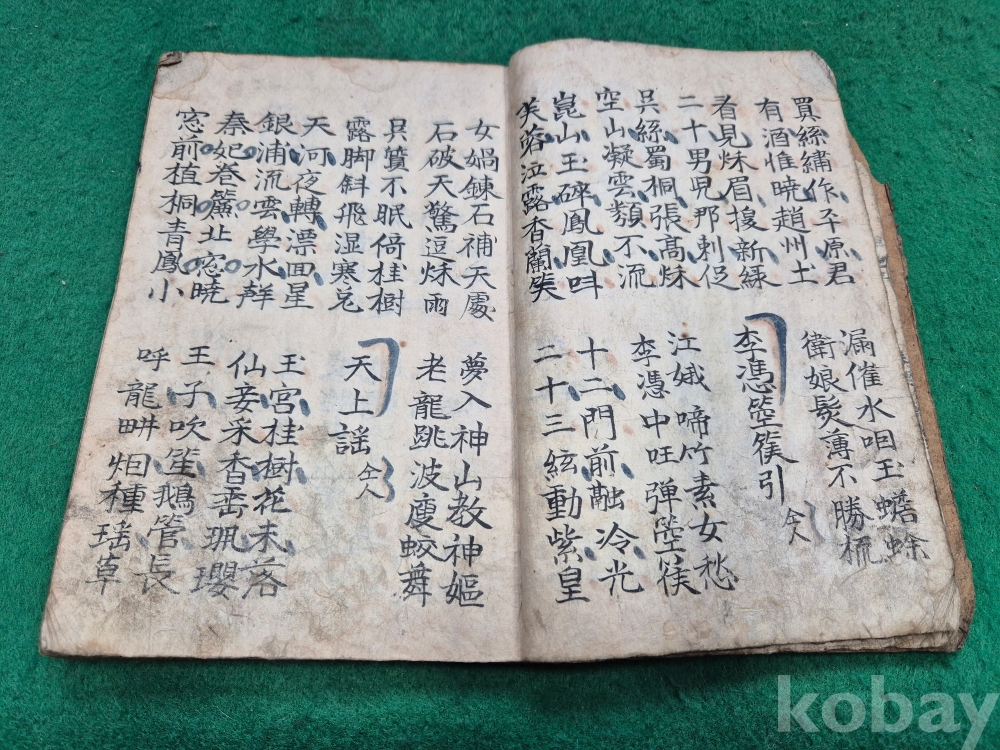 買絲繡作平原君
有酒惟曉趙州土
漏催水咽玉蟾蜍
衛娘髮薄不勝梳
看見秌眉換新綠
二十男兒那刺促
李憑箜篌引 仝人
吳絲蜀桐張高秌
空山凝雲頹不流
江娥啼竹素女愁
李憑中囯彈箜篌
崑山玉碎鳳凰叫
芙蓉泣露香蘭笑
十二門前融冷光
二十三絃動紫皇
女媧鍊石補天處
石破天驚逗秌雨
夢入神山教神嫗
老龍跳波瘦蛟舞
吳質不眠倚桂樹
露脚斜飛湿寒兎
天上謠 仝人
天河夜轉漂回星
銀浦流雲學水声
玉宮桂樹花未落
仙妾采香垂珮瓔
秦妃巻簾北窓曉
窓前植桐青鳳小
王子吹笙鵝管長
呼龍畊烟種瑤草
kobay